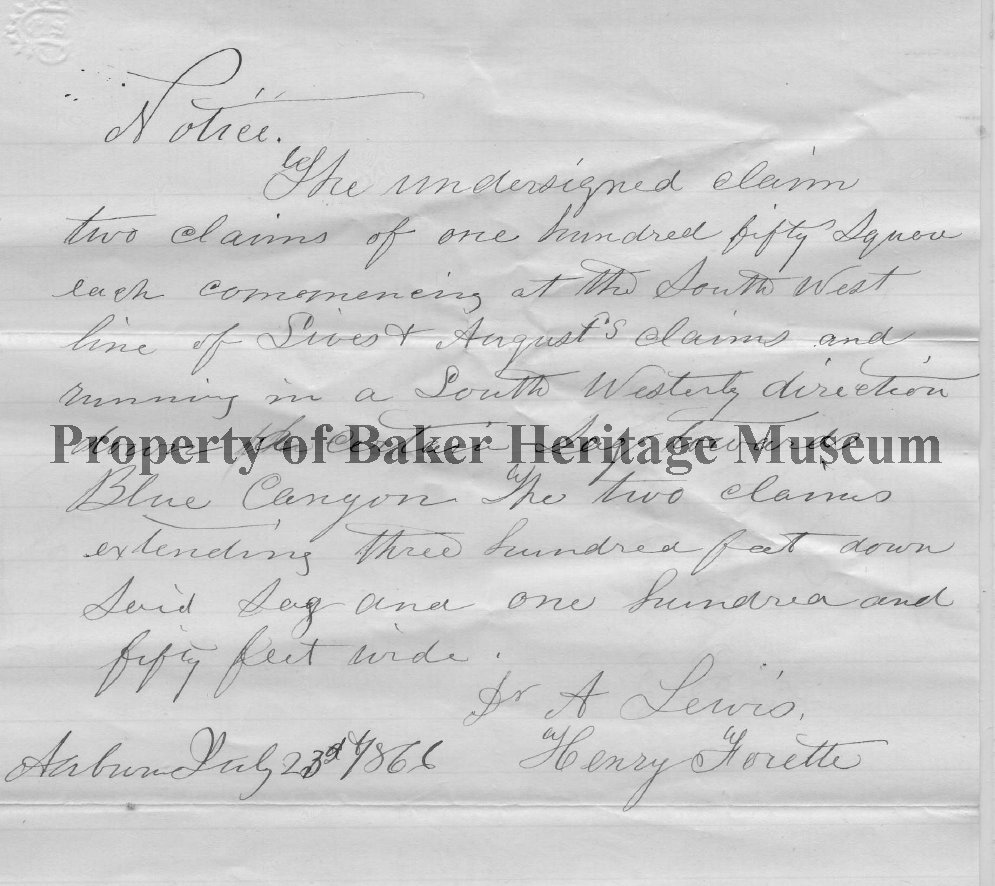 Notice.
The undersigned claim
two claims of one hundred fifty square
each commencing at the South West
line of & August's claims and
running in a South Westerly direction
down the certain Sag towards
Property of Baker Heritage Museum
Blue Canyon The two claims
extending three hundred feet down
Said Sag and one hundred and
fifty feet wide.
Dr A Lewis,
Henry Florette
Auburn July 23d 1866